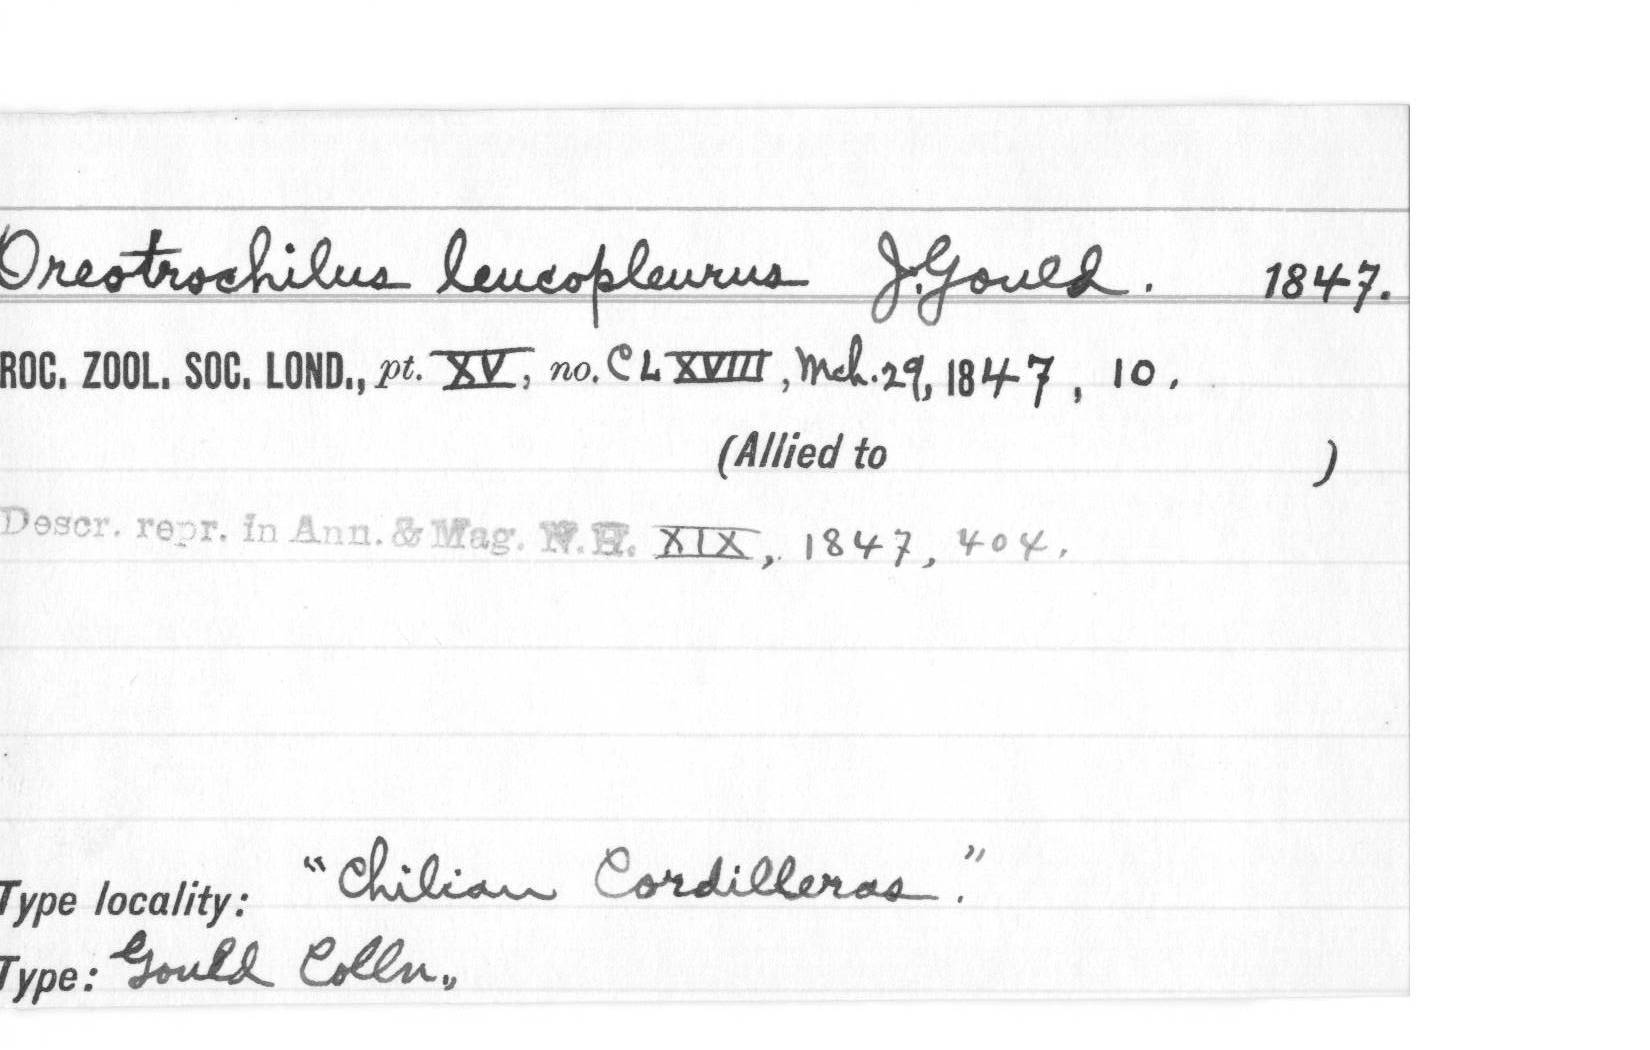 Oreotrochilus leucopleurus J. Gould. 1847.
ROC. ZOOL. SOC. LOND., pt. XV, no. CLXVIII, Mch. 29, 1847, 10.
(Allied to )
Descr. repr. in Ann. & Mag. N.H. XIX, 1847, 404.
Type locality: "Chilian Cordilleras."
Type: Gould Colln.,